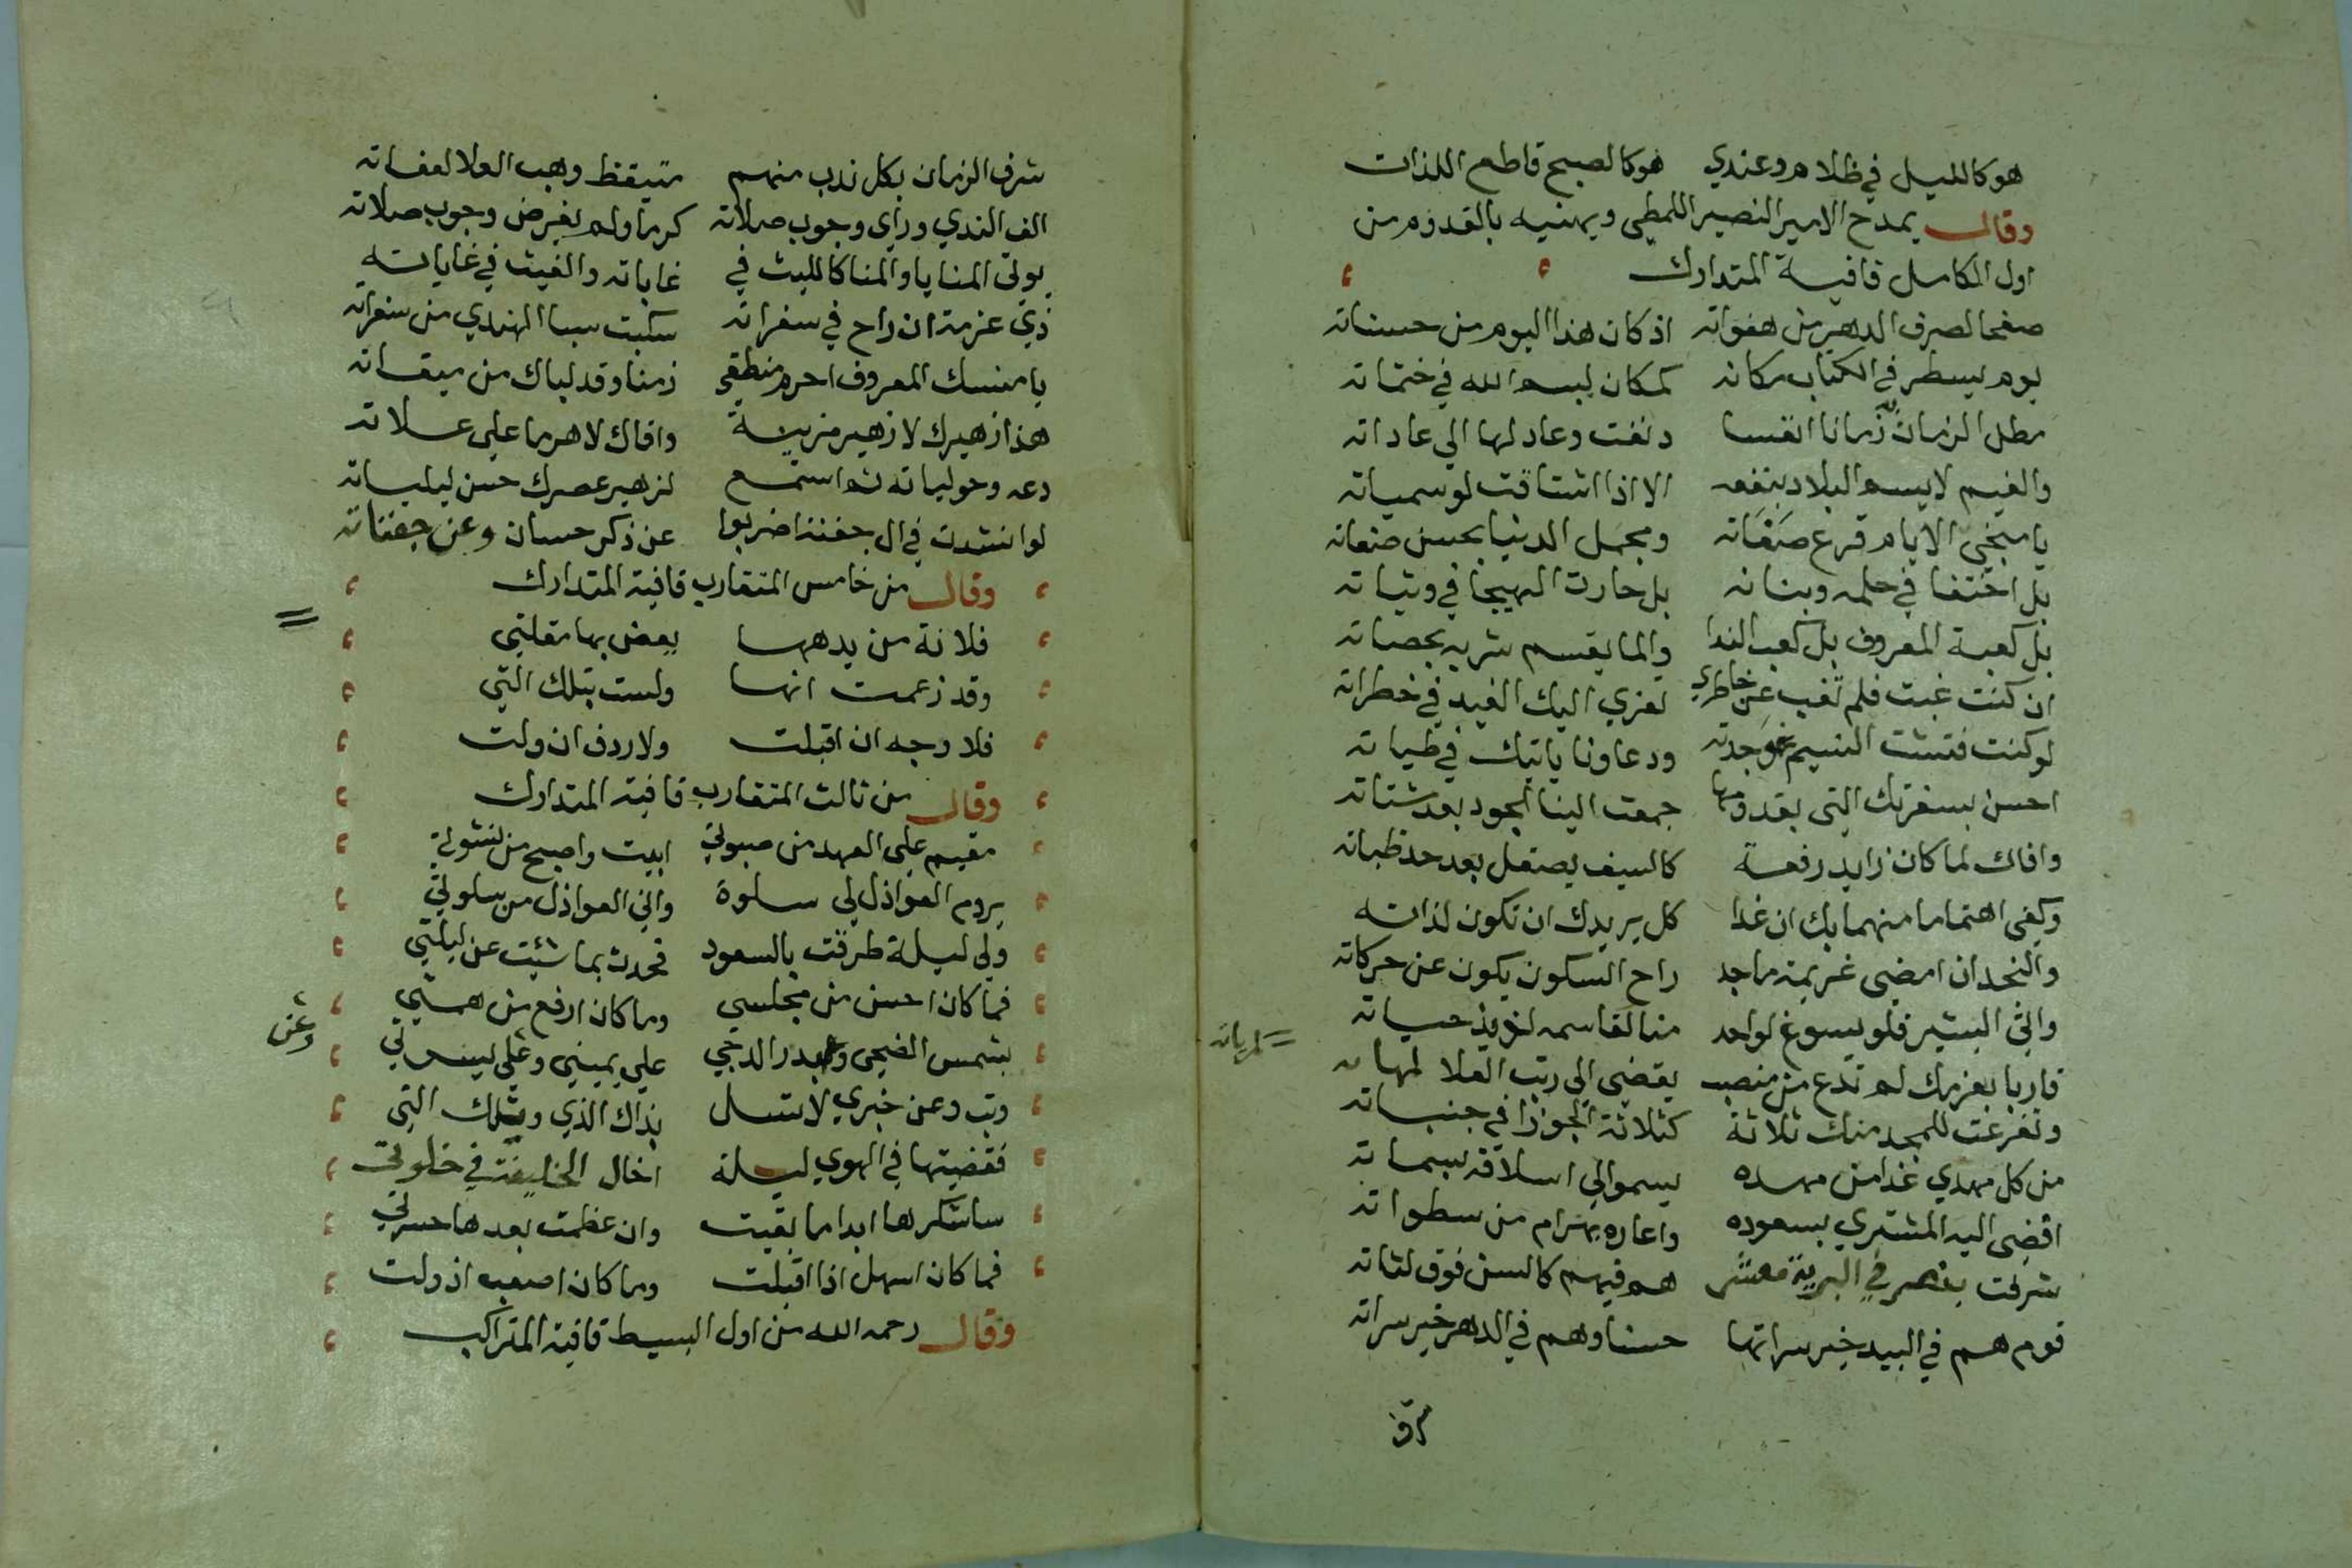 هو كالليل في ظلام وعندي هو كالصبح قاطع اللذات
وقال يمدح الامير النصير اللمطي ويهنيه بالقدوم من
اول الكامل قافية المتدارك
صفحا لصرف الدهر من هفواته اذ كان هذا اليوم من حسناته
يوم يسطر في الكتاب مكانه كمكان بسم الله في ختماته
مطل الزمان زمانا انفسا دنفت وعاد لها الي عاداته
والغيم لا يسم البلاد بنفعه الا اذا اشتاقت لوسمياته
يا منجي الايام قرع صفاته ومجمل الدنيا بحسن صفاته
بل احنفا في حلمه وبنانه بل حارث الهيجا في وثباته
بل كعبة المعروف بل كعب الندا والما يقسم شربه بحصاته
ان كنت غبت فلم تغب عن خاطري لعزي اليك الغيد في خطراته
لو كنت فتشت النسيم وجدته ودعاونا ياتيك في طياته
احسن بسفرتك التي بقدومها جمعت الينا الجود بعد شتاته
وافاك لما كان زايد رفعة كالسيف يصقل بعد حد ظباته
وكفي اهتماما منهما بك ان غدا كل يريدك ان تكون لذاته
والنجد ان امضي عزيمة ماجد راح السكون يكون عن حركاته
واتي البشير فلو يسوغ لواحد منا لقاسمه لذيذ حياته
فاربا بعزمك لم تدع من منصب يقضي الي رتب العلا لمهاته
= لم ياته
وتفرعت للمجد منك ثلاثة كثلاثة الجوزا في جنباته
من كل مهدي غدا من مهده يسمو الي اسلافه بسماته
افضي اليه المشتري بسعوده واعاره بهرام من سطواته
شرفت بنصر في البرية معشر هم فيهم كالسن فوق لثاته
قوم هم في البيد خير سراتها حسنا وهم في الدهر خير سراته
شرف
شرف الزمان بكل ندب منهم متيقظ وهب العلا لعفاته
الف الندي وراي وجوب صلاته كرما ولم يفرض وجوب صلاته
يولي المنايا والمنا كالليث في غاباته والغيث في غاياته
ذي عزمة ان راح في سفراته سكبت سبا الهندي من سفراته
يا منسك المعروف احرم منطقي زمنا وقد لباك من ميقاته
هذا زهيرك لا زهير مزينة وافاك لا هرما علي علاته
دعه وحولياته ثم استمع لزهير عصرك حسن ليلياته
لو انشدت في ال جفنة اضربوا عن ذكر حسان وعن جفناته
وقال من خامس المتقارب قافية المتدارك
فلانة من يدهها يعض بها مقلتي
وقد زعمت انها ولست بتلك التي
فلا وجه ان اقبلت ولا ردف ان ولت
وقال من ثالث المتقارب قافية المتدارك
مقيم علي العهد من صبوتي ابيت واصبح من نشوتي
يروم العواذل لي سلوة واني العواذل من سلوتي
ولي ليلة طرقت بالسعود فحدث بما شيت عن ليلتي
فما كان احسن من مجلسي وما كان ارفع من همتي
بشمس الضحي وبدر الدجي علي يميني وعلي يسرتي
وعن
وبت وعن خبري لا تسل بذاك الذي وبتلك التي
فقضيتها في الهوي ليلة اخال الخليفة في خلوتي
ساشكرها ابدا ما بقيت وان عظمت بعدها حسرتي
فما كان اسهل اذا اقبلت وما كان اصعب اذ ولت
وقال رحمه الله من اول البسيط قافية المتراكب